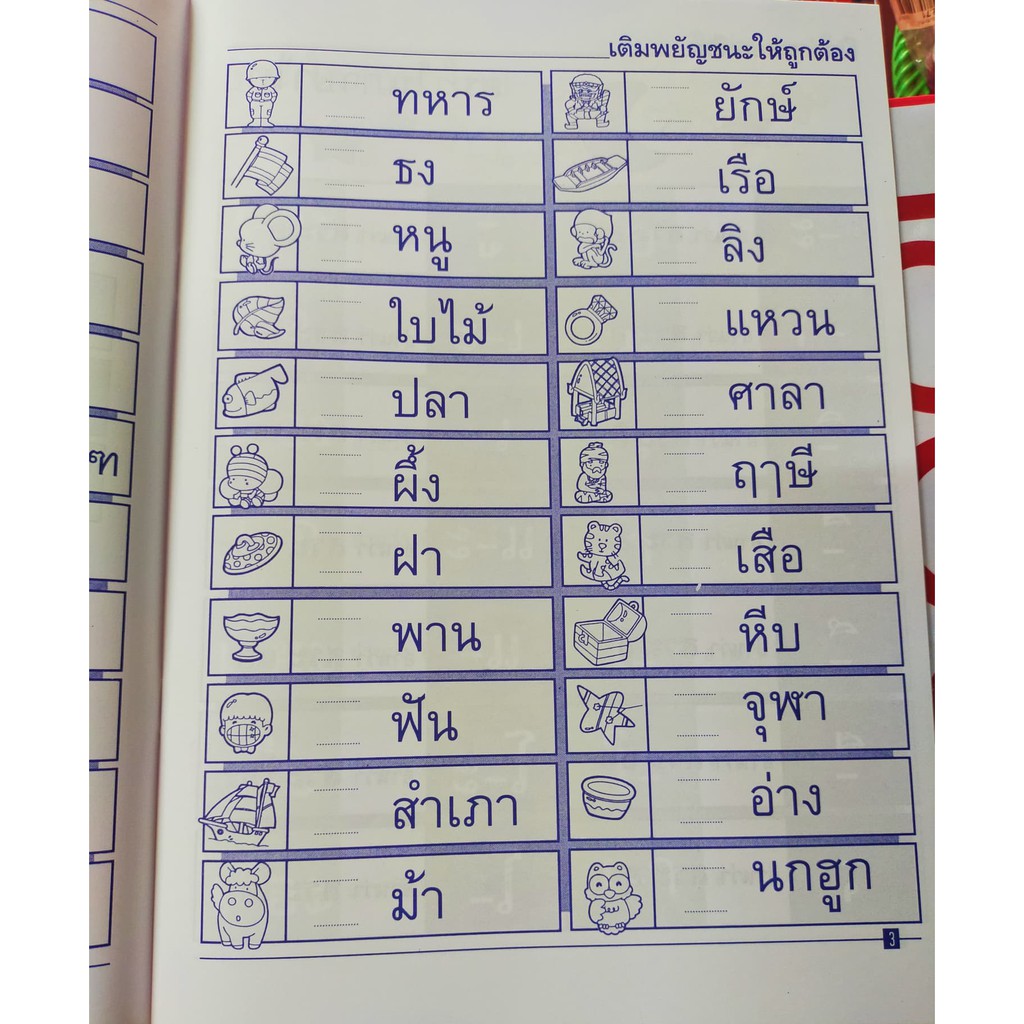 เติมพยัญชนะให้ถูกต้อง
ทหาร
ยักษ์
ธง
เรือ
หนู
ลิง
ใบไม้
แหวน
ปลา
ศาลา
ผึ้ง
ฤๅษี
ฝา
เสือ
พาน
หีบ
ฟัน
จุฬา
สำเภา
อ่าง
ม้า
นกฮูก
3